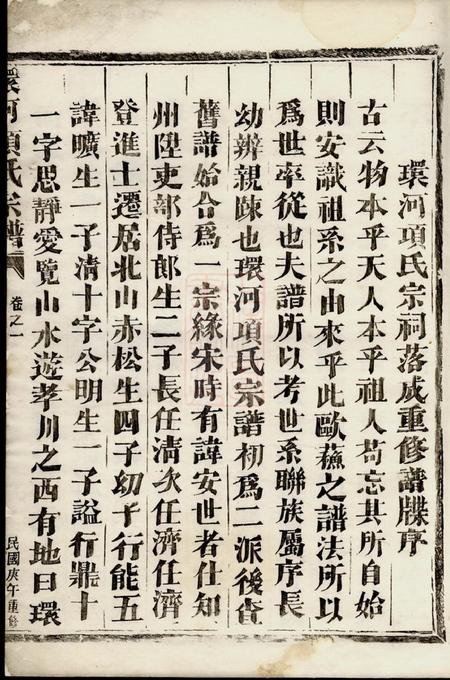 環河項氏宗祠落成重修譜牒序
古云物本乎天人本乎祖人茍忘其所自始
則安識祖系之由來乎此歐蘓之譜法所以
爲世率從也夫譜所以考世系聯族屬序長
幼辨親踈也環河項氏宗譜初爲二派後查
舊譜始合爲一宗緣宋時有諱安世者仕知
州陞吏部侍郎生二子長任清次任濟任濟
登進士遷居北山赤松生四子幼子行能五
諱曠生一子清十字公明生一子謚行鼎十
一字思靜愛覽山水遊孝川之西有地曰環
環河項氏宗譜
卷之一
民國庚午重修